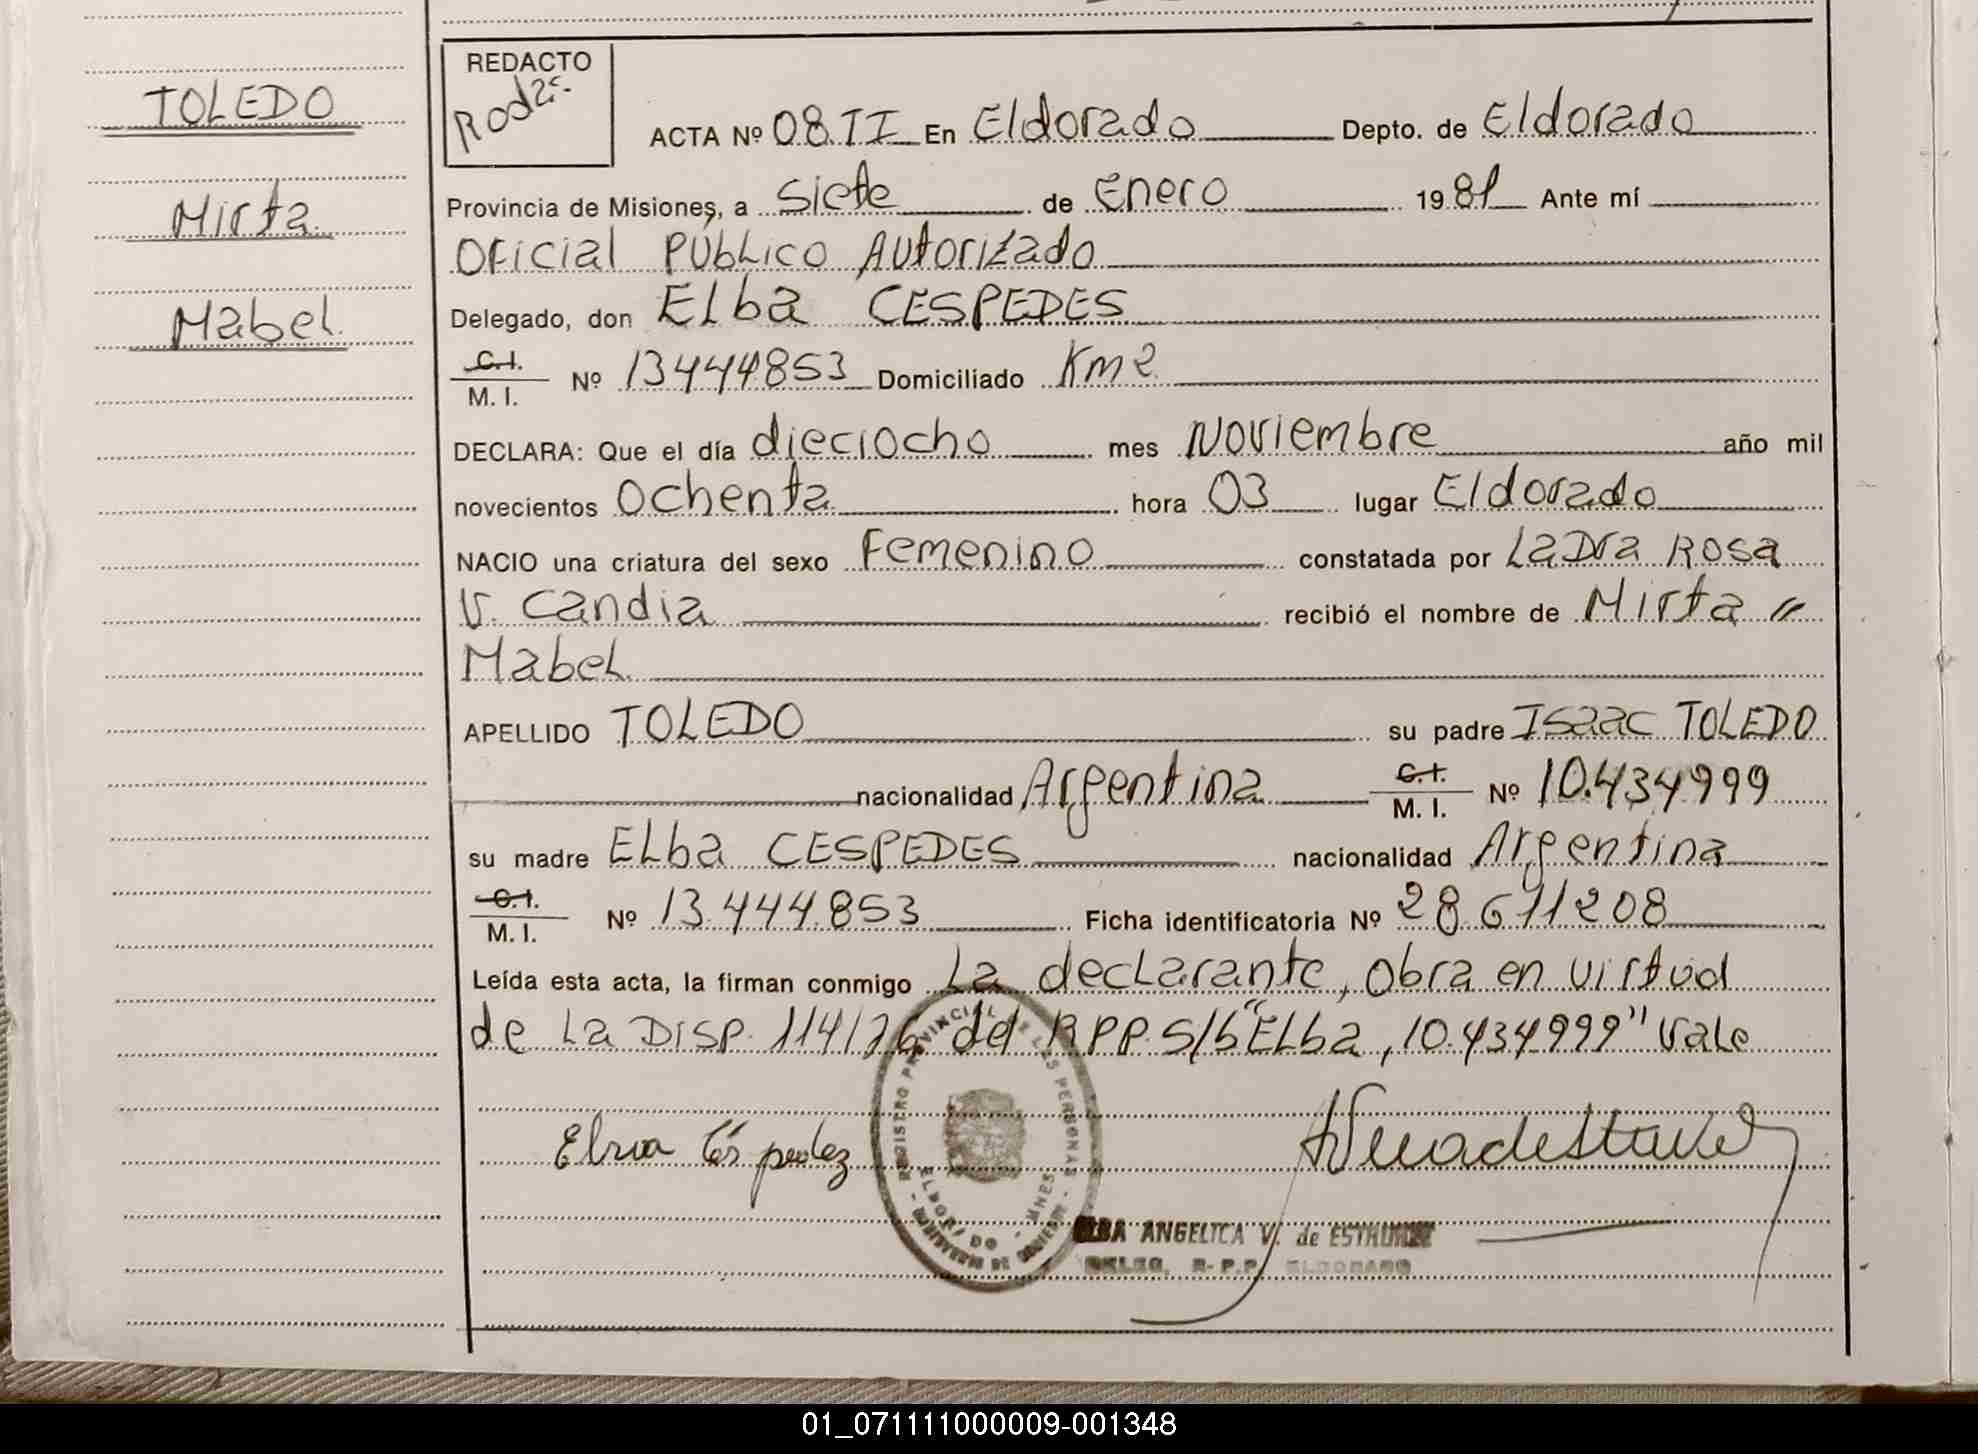 TOLEDO
Mirta
Mabel
REDACTO
ACTA Nº 08.TI En Eldorado Depto. de Eldorado
Provincia de Misiones, a siete de Enero 1981 Ante mí
Oficial Público Autorizado
Delegado, don Elba CESPEDES
C.I. M. I. Nº 13444853 Domiciliado Km 2
DECLARA: Que el día dieciocho mes Noviembre año mil
novecientos Ochenta hora 03 lugar Eldorado
NACIO una criatura del sexo Femenino constatada por La Dra Rosa
V. Candia recibió el nombre de Mirta
Mabel
APELLIDO TOLEDO su padre Isaac TOLEDO
nacionalidad Argentina C.I. M. I. Nº 10.434999
su madre Elba CESPEDES nacionalidad Argentina
C.I. M. I. Nº 13.444.853 Ficha identificatoria Nº 28.611208
Leída esta acta, la firman conmigo La declarante, Obra en virtud
de La DISP. 114/76 del RPP. S/b "Elba, 10.434999" Vale
REGISTRO PROVINCIAL DE LAS PERSONAS
ELDORADO - MNES
MINISTERIO DE GOBIERNO
ELBA ANGELICA V. de
DELEG. R. P.P. ELDORADO
01_071111000009-001348